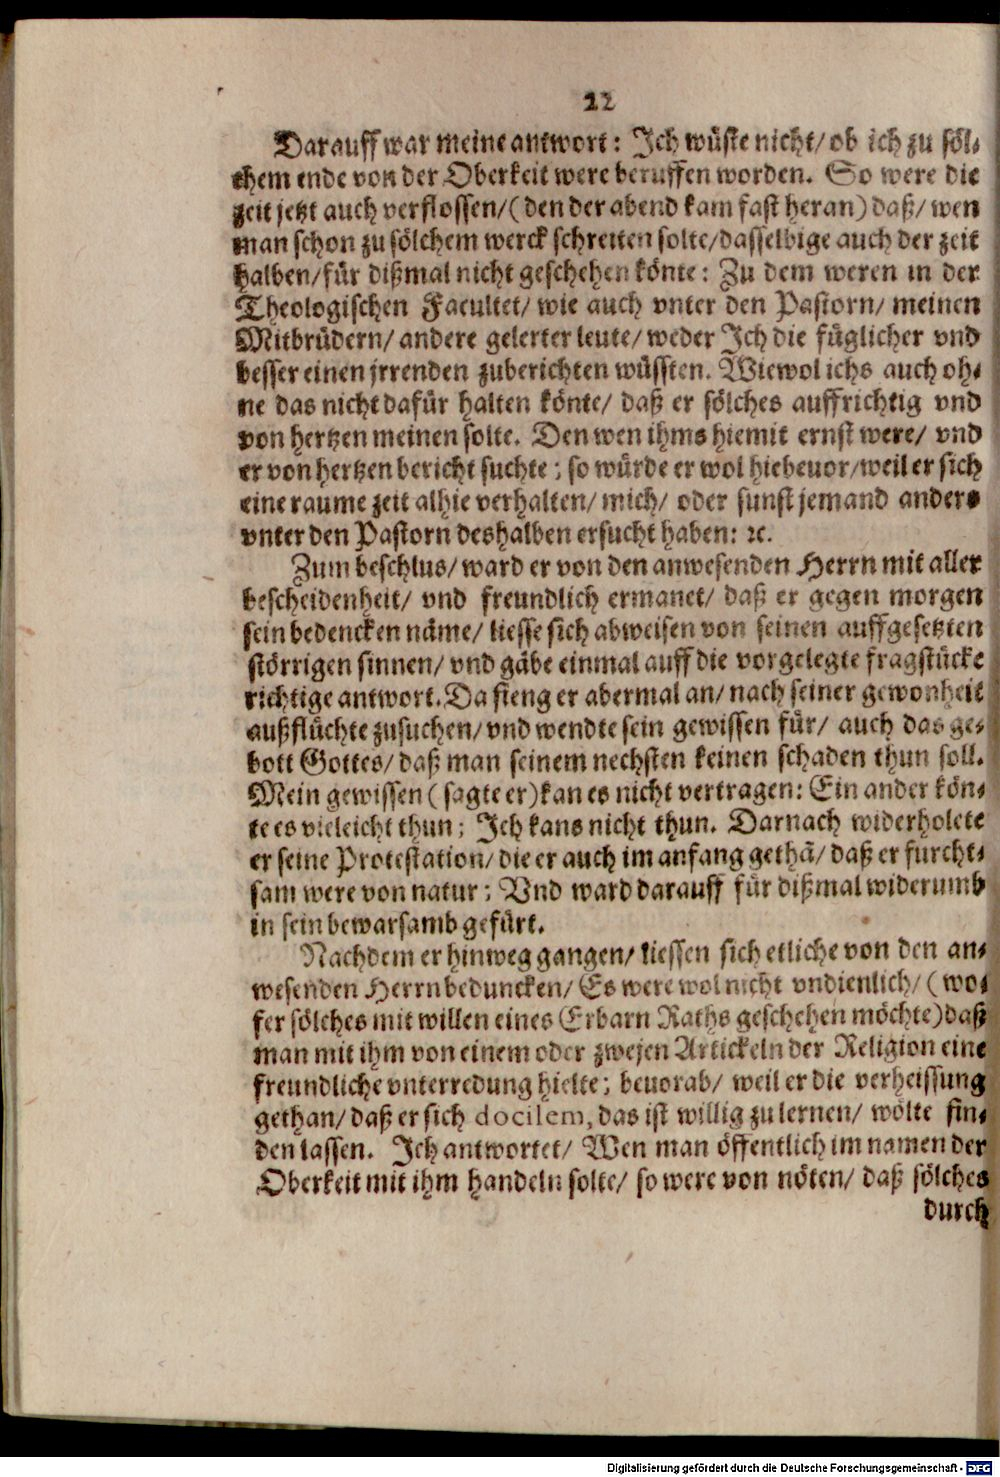 22
Darauff war meine antwort: Ich wüste nicht/ ob ich zu söl-
chem ende von der Oberkeit were beruffen worden. So were die
zeit jetzt auch verflossen/ (den der abend kam fast heran) daß/ wen
man schon zu sölchem werck schreiten solte/ dasselbige auch der zeit
halben/ für dißmal nicht geschehen könte: Zu dem weren in der
Theologischen Facultet/ wie auch vnter den Pastorn/ meinen
Mitbrüdern/ andere gelerter leute/ weder Ich die füglicher vnd
besser einen jrrenden zuberichten wüssten. Wiewol ichs auch oh-
ne das nicht dafür halten könte/ daß er sölches auffrichtig vnd
von hertzen meinen solte. Den wen ihms hiemit ernst were/ vnd
er von hertzen bericht suchte; so würde er wol hiebeuor/ weil er sich
eine raume zeit alhie verhalten/ mich/ oder sunst jemand anders
vnter den Pastorn deshalben ersucht haben: ꝛc.
Zum beschlus/ ward er von den anwesenden Herrn mit aller
bescheidenheit/ vnd freundlich ermanet/ daß er gegen morgen
sein bedencken näme/ liesse sich abweisen von seinen auffgesetzten
störrigen sinnen/ vnd gäbe einmal auff die vorgelegte fragstücke
richtige antwort. Da fieng er abermal an/ nach seiner gewonheit
außflüchte zusuchen/ vnd wendte sein gewissen für/ auch das ge-
bott Gottes/ daß man seinem nechsten keinen schaden thun soll.
Mein gewissen (sagte er) kan es nicht vertragen: Ein ander kön-
te es vieleicht thun; Ich kans nicht thun. Darnach widerholete
er seine Protestation/ die er auch im anfang gethā/ daß er furcht-
sam were von natur; Vnd ward darauff für dißmal widerumb
in sein bewarsamb gefürt.
Nachdem er hinweg gangen/ liessen sich etliche von den an-
wesenden Herrn beduncken/ Es were wol nicht vndienlich/ (wo-
fer sölches mit willen eines Erbarn Raths geschehen möchte) daß
man mit ihm von einem oder zwejen Artickeln der Religion eine
freundliche vnterredung hielte; beuorab/ weil er die verheissung
gethan/ daß er sich docilem, das ist willig zu lernen/ wölte fin-
den lassen. Ich antwortet/ Wen man öffentlich im namen der
Oberkeit mit ihm handeln solte/ so were von nöten/ daß sölches
durch
Digitalisierung gefördert durch die Deutsche Forschungsgemeinschaft - DFG